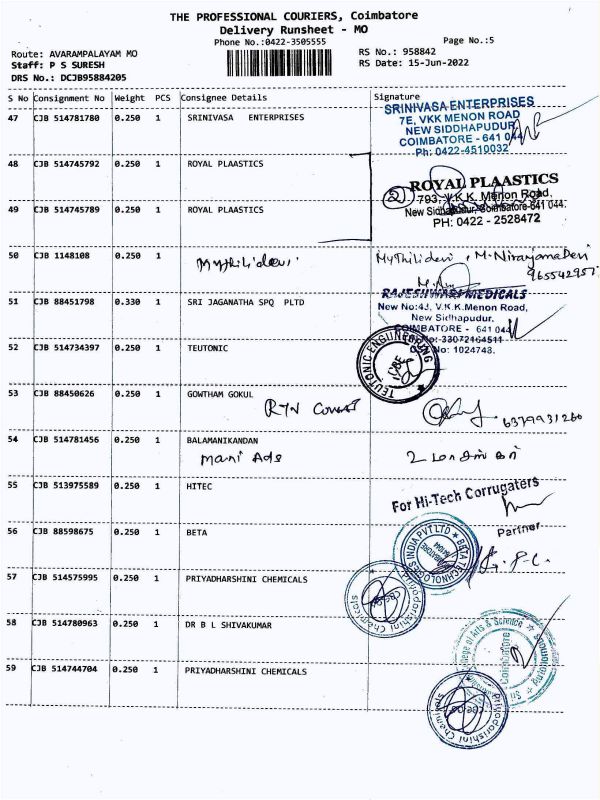 THE PROFESSIONAL COURIERS, Coimbatore
Delivery Runsheet - MO
Phone No.:0422-3505555
Page No.:5
Route: AVARAMPALAYAM MO
RS No.: 958842
Staff: P S SURESH
RS Date: 15-Jun-2022
DRS No.: DCJB95884205
S No Consignment No Weight PCS Consignee Details Signature
47 CJB 514781780 0.250 1 SRINIVASA ENTERPRISES
SRINIVASA ENTERPRISES
7E, VKK MENON ROAD
NEW SIDDHAPUDUR
COIMBATORE - 641 044
Ph: 0422-4510032
48 CJB 514745792 0.250 1 ROYAL PLAASTICS
ROYAL PLAASTICS
793, V.K.K. Menon Road,
New Sidhapudur, Coimbatore-641 044.
PH: 0422 - 2528472
49 CJB 514745789 0.250 1 ROYAL PLAASTICS
50 CJB 1148108 0.250 1
Mythilidevi
Mythilidevi, M. Niranjana Devi
51 CJB 88451798 0.330 1 SRI JAGANATHA SPQ PLTD
RAJESHWARI MEDICALS
New No:43, V.K.K.Menon Road,
New Sidhapudur.
COIMBATORE - 641 044
No: 1024748.
52 CJB 514734397 0.250 1 TEUTONIC
TEUTONIC ENGINEERING
53 CJB 88450626 0.250 1 GOWTHAM GOKUL
RTN
6379931260
54 CJB 514781456 0.250 1 BALAMANIKANDAN
Mani Ads
55 CJB 513975589 0.250 1 HITEC
For Hi-Tech Corrugaters
Partner
56 CJB 88598675 0.250 1 BETA
BETA TECHNOLOGIES INDIA PVT LTD
57 CJB 514575995 0.250 1 PRIYADHARSHINI CHEMICALS
Priyadarishini Chemicals
58 CJB 514780963 0.250 1 DR B L SHIVAKUMAR
College of Arts & Science
Coimbatore
59 CJB 514744704 0.250 1 PRIYADHARSHINI CHEMICALS
Priyadarishini Chemicals